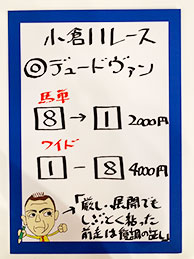 小倉11レース
◎デュードヴァン
馬単
8 → 1 2000円
ワイド
1 － 8 4000円
「厳しい展開でも
しぶとく粘った
前走は復調の証し」